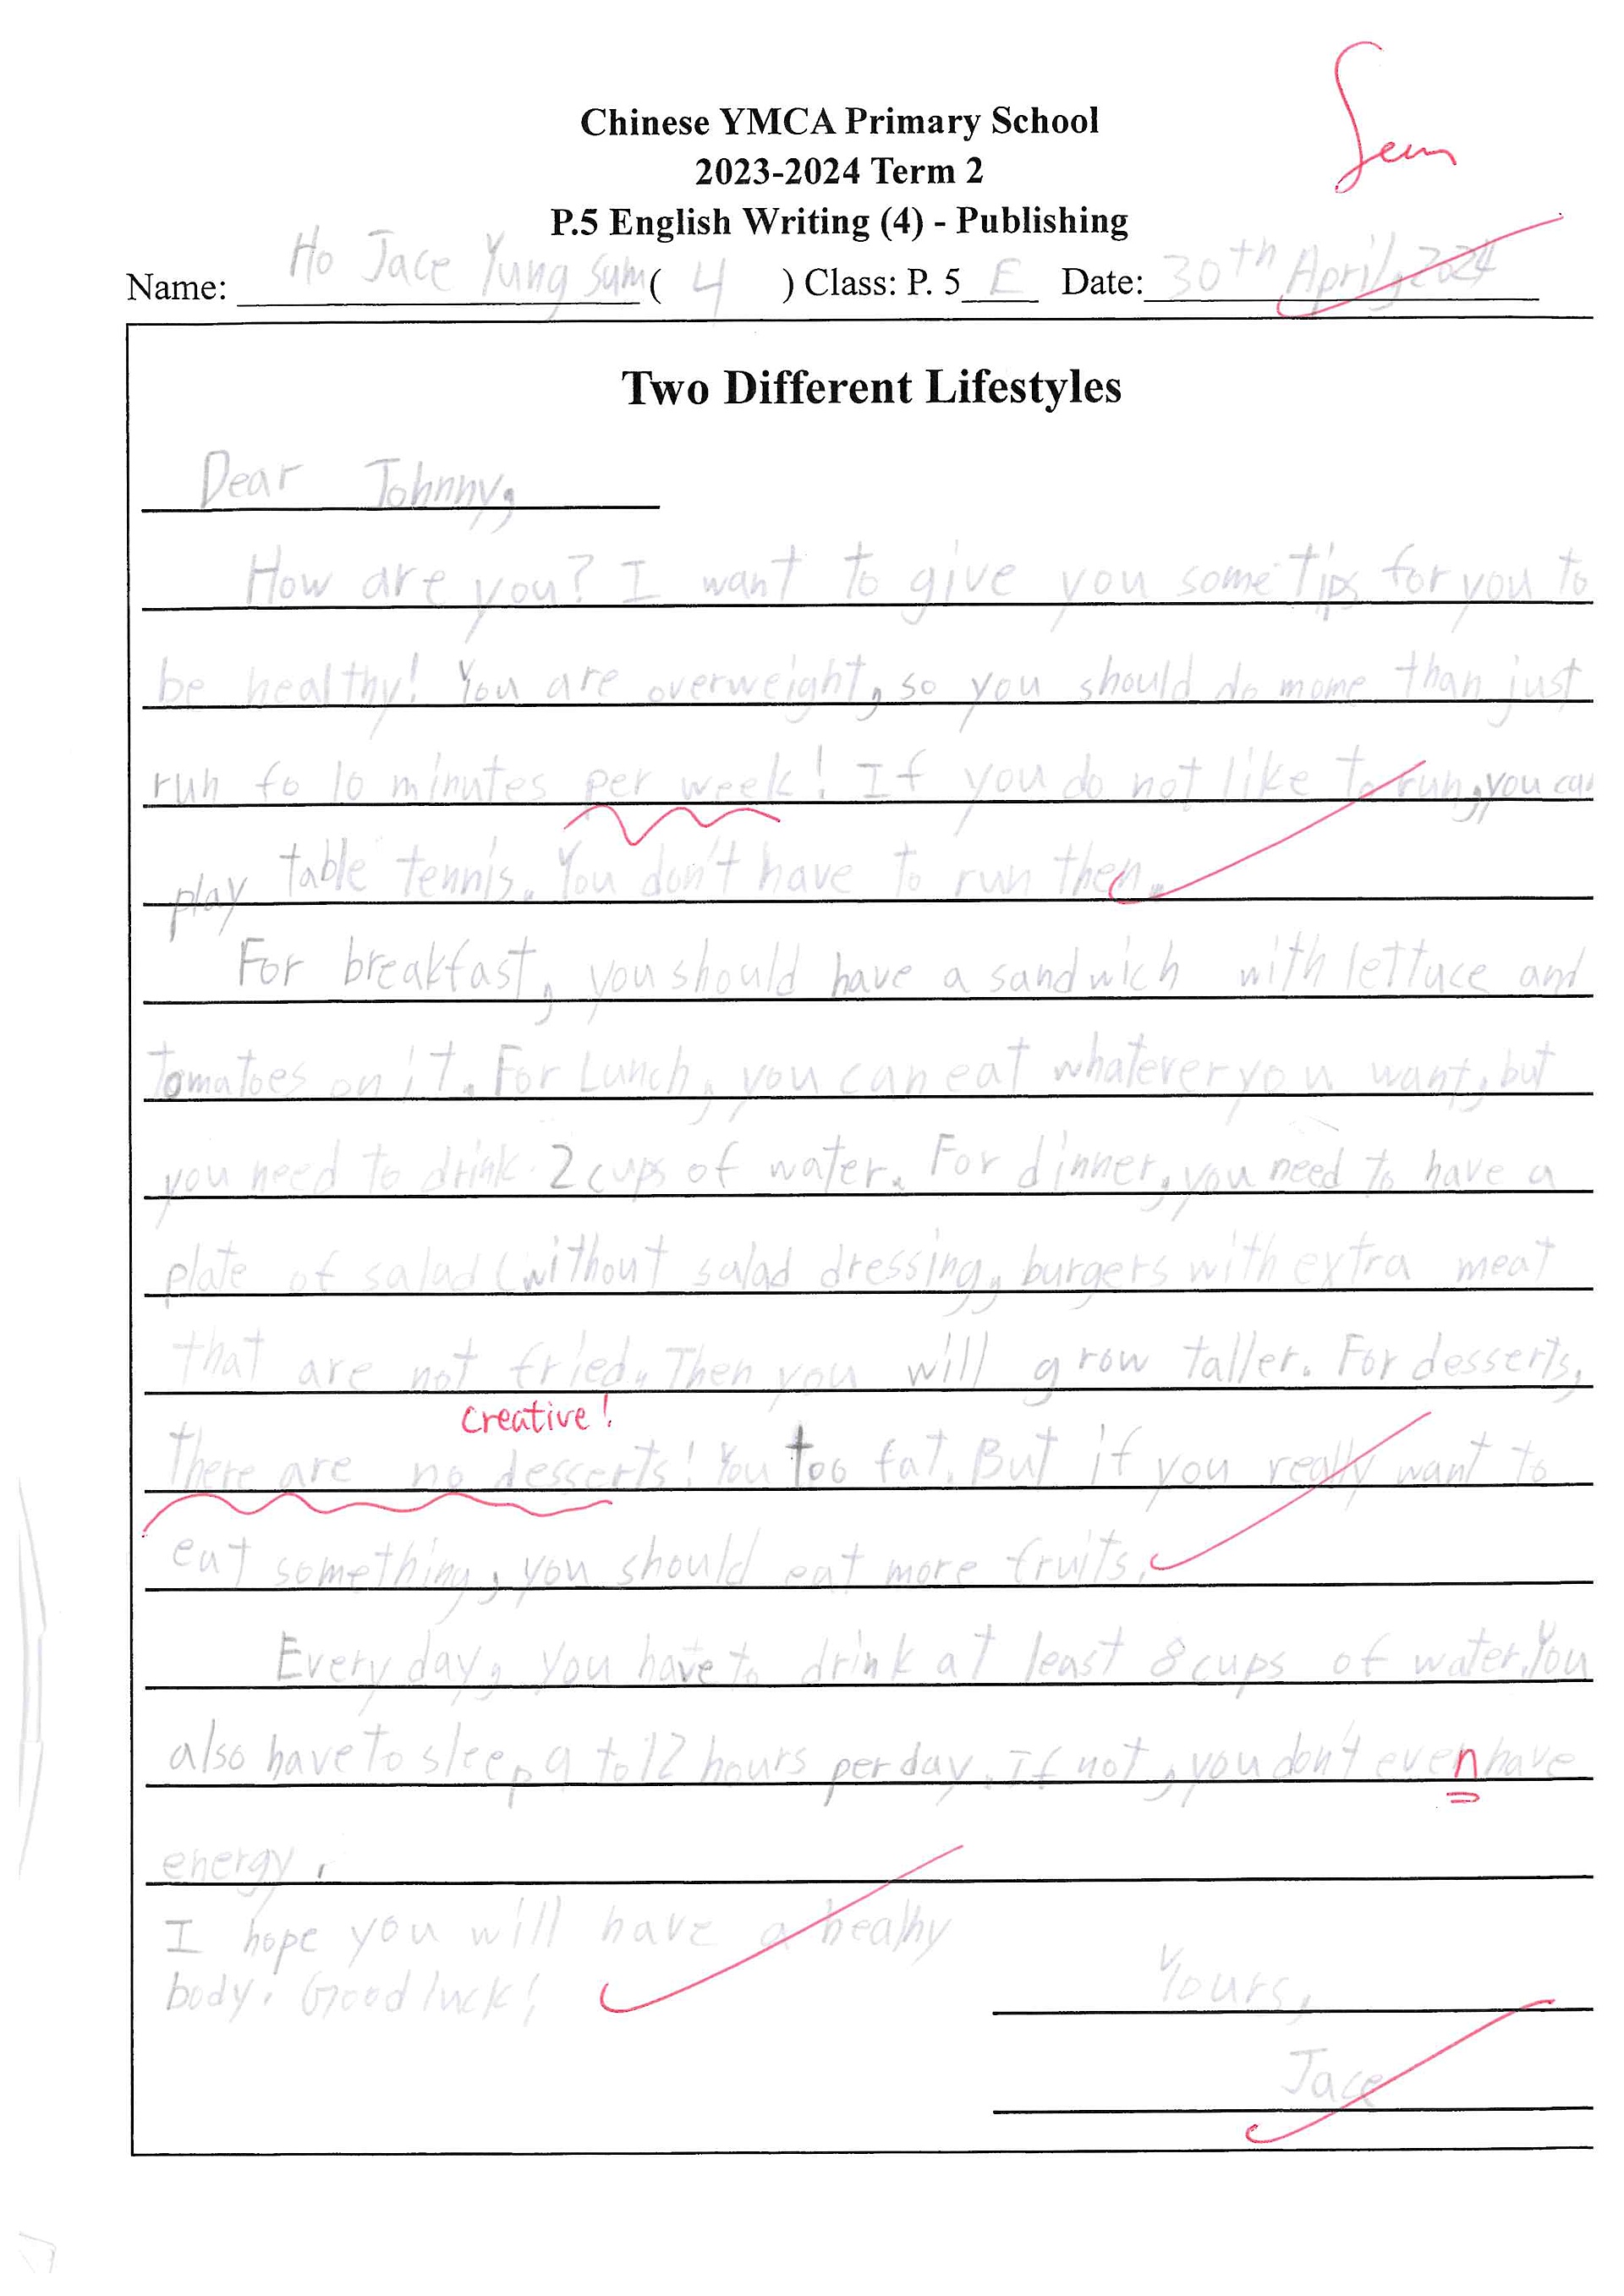 Seen
Chinese YMCA Primary School
2023-2024 Term 2
P.5 English Writing (4) - Publishing
Name: Ho Jace Yung Sum ( 4 ) Class: P. 5 E Date: 30th April, 2024
Two Different Lifestyles
Dear Johnny,
How are you? I want to give you some tips for you to
be healthy! You are overweight, so you should do mome than just
run fo 10 minutes per week! If you do not like to run, you can
play table tennis. You don't have to run then.
For breakfast, you should have a sandwich with lettuce and
tomatoes on it. For Lunch, you can eat whatever you want, but
you need to drink 2 cups of water. For dinner, you need to have a
plate of salad (without salad dressing, burgers with extra meat
that are not fried. Then you will grow taller. For desserts,
creative!
there are no desserts! You too fat. But if you really want to
eat something, you should eat more fruits.
Every day, you have to drink at least 8 cups of water. You
also have to sleep 9 to 12 hours per day. If not, you don't even have
energy.
I hope you will have a healhy
body. Good luck!
Yours,
Jace